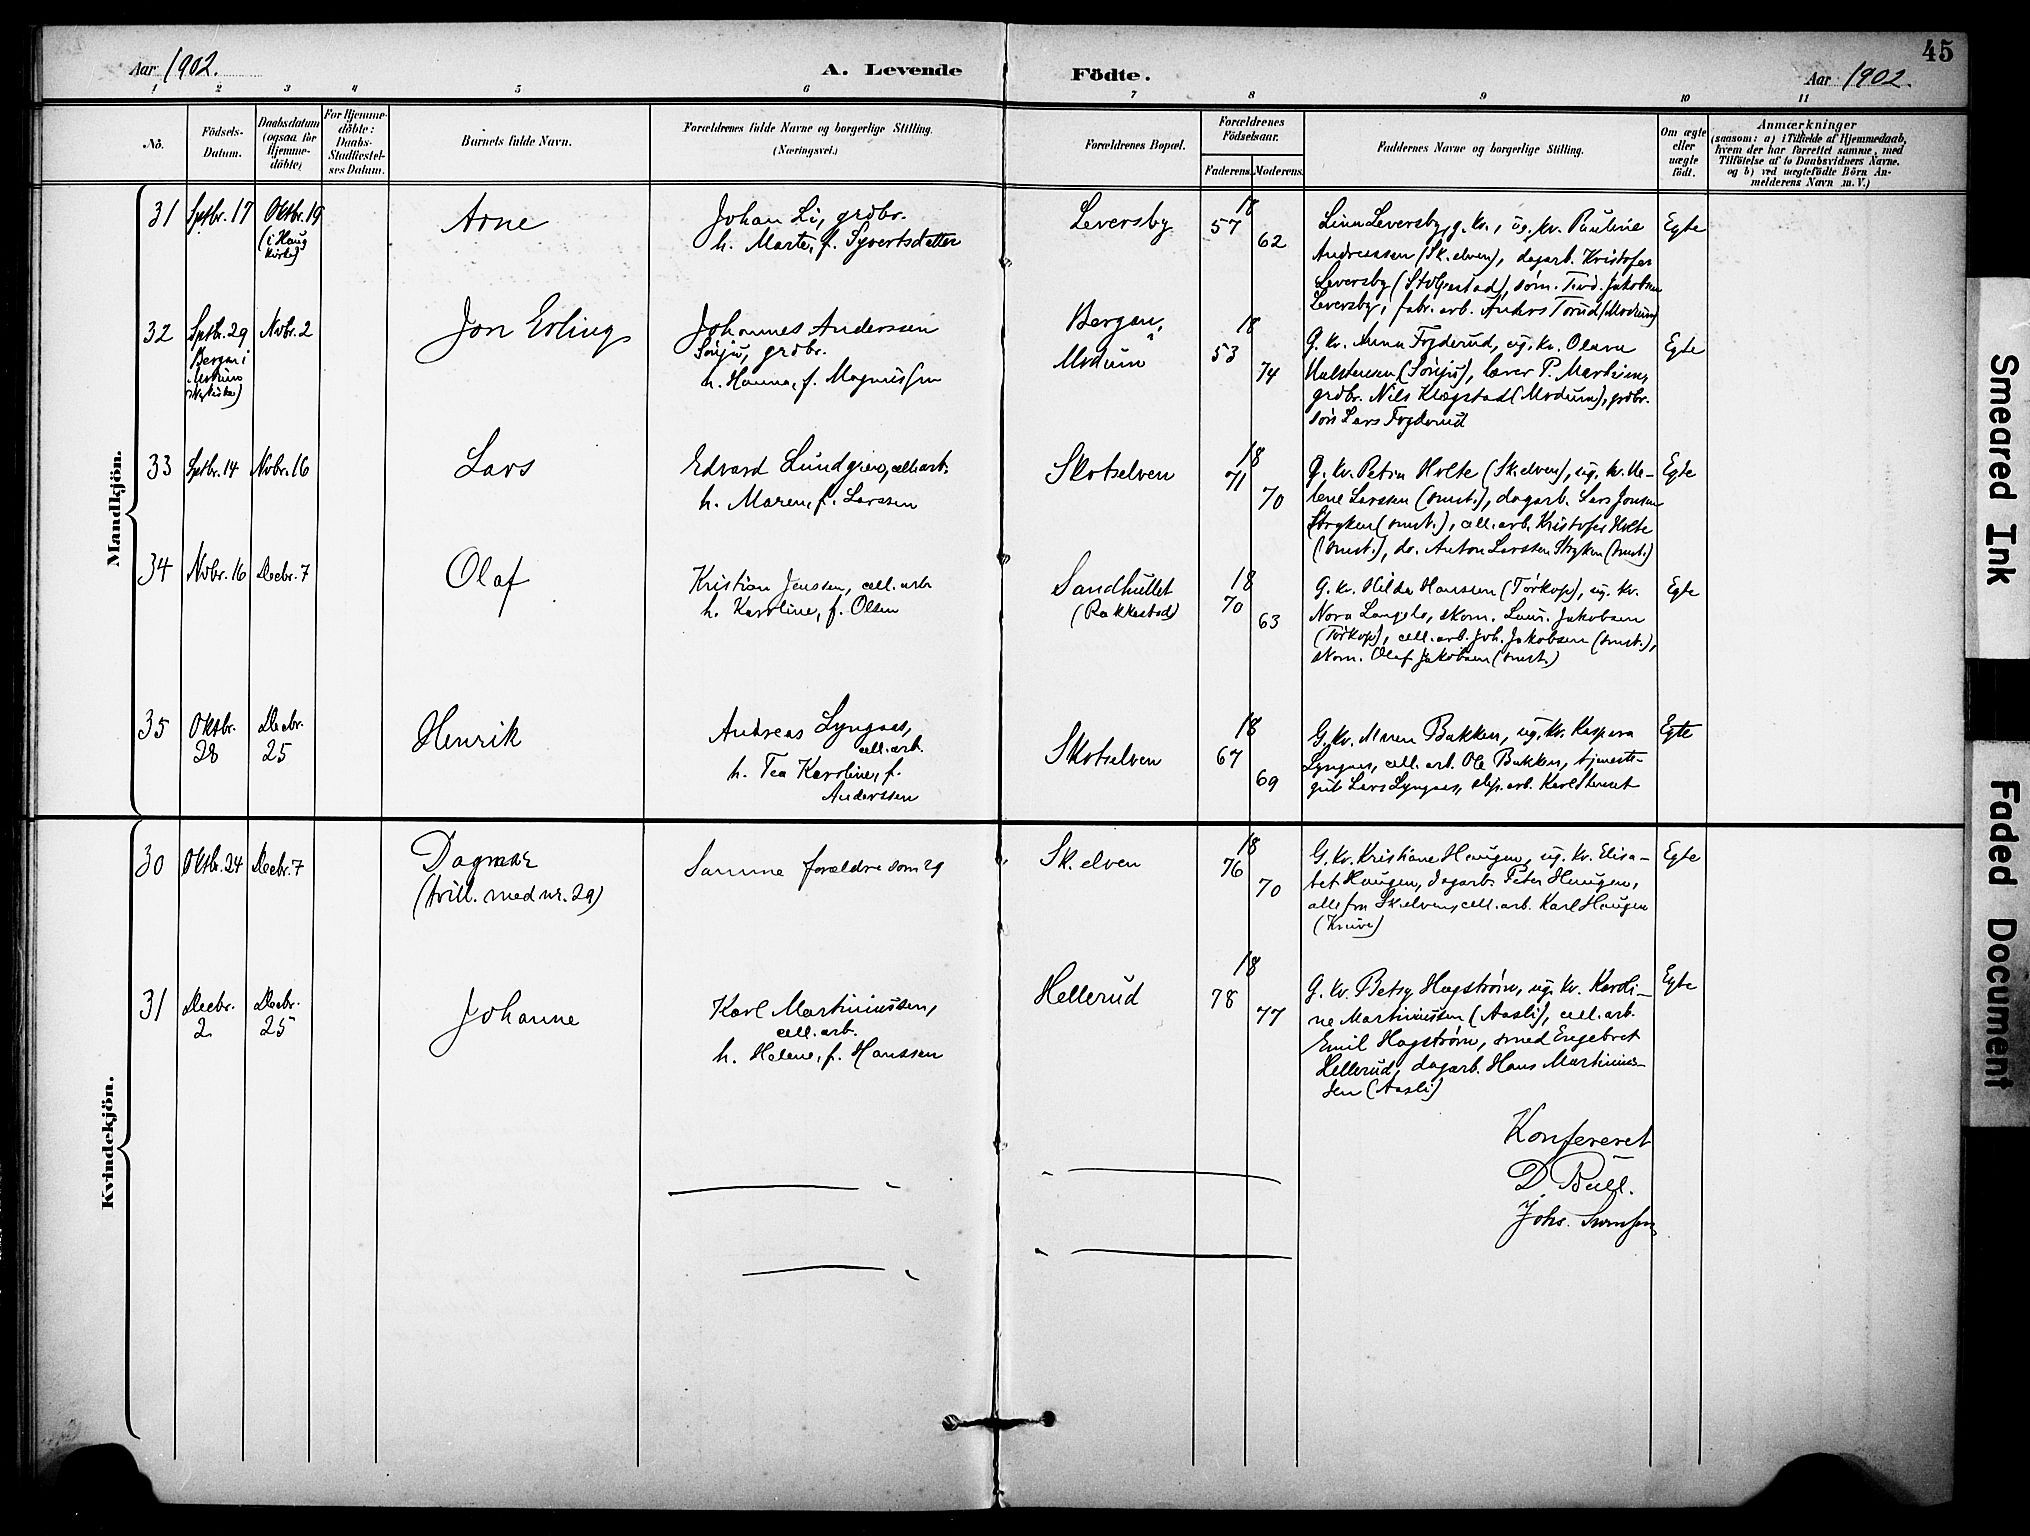 45
Aar 1902.
A. Levende Födte.
Aar 1902.
1 2 3 4 5 6 7 8 9 10 11
No.
Födsels-
Datum.
Daabsdatum
(ogsaa for
Hjemme-
döbte)
For Hjemme-
döbte:
Daabs-
Stadfæstel-
ses Datum.
Barnets fulde Navn.
Forældrenes fulde Navne og borgerlige Stilling.
(Næringsvei.)
Forældrenes Bopæl.
Forældrenes
Födselsaar.
Faderens. Moderens.
Faddernes Navne og borgerlige Stilling.
Om ægte
eller
uægte
födt.
Anmærkninger
(saasom: a) i Tilfælde af Hjemmedaab,
hvem der har forrettet samme, med
Tilföielse af to Daabsvidners Navne.
og b) ved uægtefödte Börn An-
melderens Navn m. V.)
Mandkjön.
31
Septbr. 17
Oktbr. 19
(i Haug
kirke)
Arne
Johan Li, grdbr.
h. Marte, f. Syvertsdatter
Leversby
18
57
62
Leversby, g. kv., ug. kv. Pauline
Andreassen (Sk.elven), dagarb. Kristofer
Leversby
Jakobsen
Leversby, fabr. arb. Anders Torud (Modum)
Egte
32
Septbr. 29
Bergan i
Modum
Novbr. 2
Jon Erling
Johannes Andersen
grdbr.
h. Hanna, f. Magnussen
Bergan,
Modum
18
53
74
G. kv. Anna Fogderud, ug. kv. Olava
Halstensen
lærer P. Martinsen,
grdbr. Nils Klægstad (Modum), grdbr.
søn Lars Fogderud
Egte
33
Septbr. 14
Novbr. 16
Lars
Edvard Lundgren, cell.arb.
h. Maren, f. Larssen
Skotselven
18
71
70
G. kv. Petra Holte (Sk.elven), ug. kv. He-
lene Larssen (smst.), dagarb. Lars Jonsen
Stryken (smst.), cell. arb. Kristofer Holte
(smst.), do. Anton Larssen Stryken (smst.)
Egte
34
Novbr. 16
Decbr. 7
Olaf
Kristian Jenssen, cell. arb.
h. Karoline, f. Olsen
Sandhullet
(Rakkestad)
18
70
63
G. kv. Hilda Hanssen (Torkop), ug. kv.
Nora Langelo, skom. Laur. Jakobsen
(Torkop), cell. arb. Joh. Jakobsen (smst.),
skom. Olaf Jakobsen (smst.)
Egte
35
Oktbr.
28
Decbr.
25
Henrik
Andreas Lyngaas,
cell. arb.
h. Tea Karoline, f.
Anderssen
Skotselven
18
67
69
G. kv. Maren Bakken, ug. kv. Kaspara
Lyngaas, cell. arb. Ole Bakken, tjeneste-
gut Lars Lyngaas, arb. Karl
Egte
Kvindekjön.
30
Oktbr. 24
Decbr. 7
Dagmar
(tvill. med nr. 29)
Samme forældre som 29
Sk.elven
18
76
70
G. kv. Kristiane Haugen, ug. kv. Elisa-
bet Haugen, dagarb. Peter Haugen,
alle fra Sk.elven, cell. arb. Karl Haugen
Egte
31
Decbr.
2
Decbr.
25
Johanne
Karl Martiniussen,
cell. arb.
h. Helene, f. Hanssen
Hellerud
18
78
77
G. kv. Betsy Hagstrøm, ug. kv. Karoli-
ne Martiniussen (Aasli), cell. arb.
Emil Hagstrøm, smed Engebret
Hellerud, dagarb. Hans Martinius-
sen (Aasli)
Egte
Konfereret
D. Bull.
Johs.
Smeared Ink
Faded Document